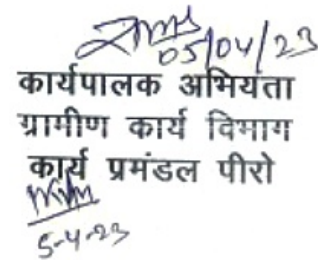 05/04/23
कार्यपालक अभियंता
ग्रामीण कार्य विभाग
कार्य प्रमंडल पीरो
5-4-23